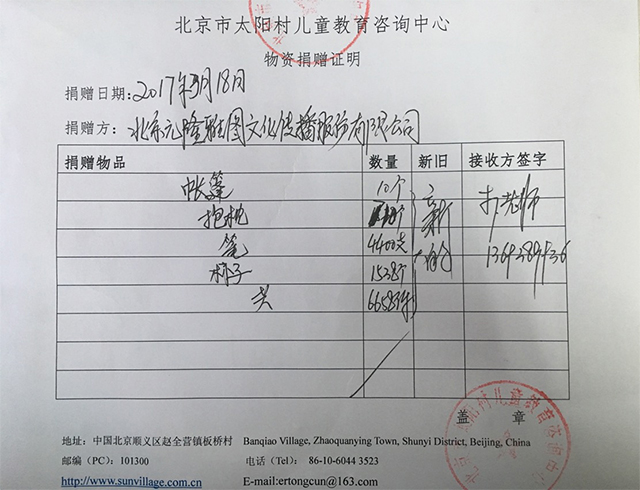 北京市太阳村儿童教育咨询中心
物资捐赠证明
捐赠日期：2017年3月18日
捐赠方：北京元隆雅图文化传播股份有限公司
捐赠物品 数量 新旧 接收方签字
帐篷 10个 新
抱枕 老师
笔 4400支
杯子 1538个
共
盖 章
地址：中国北京顺义区赵全营镇板桥村 Banqiao Village, Zhaoquanying Town, Shunyi District, Beijing, China
邮编（PC）：101300 电话（Tel）： 86-10-6044 3523
http://www.sunvillage.com.cn E-mail:ertongcun@163.com